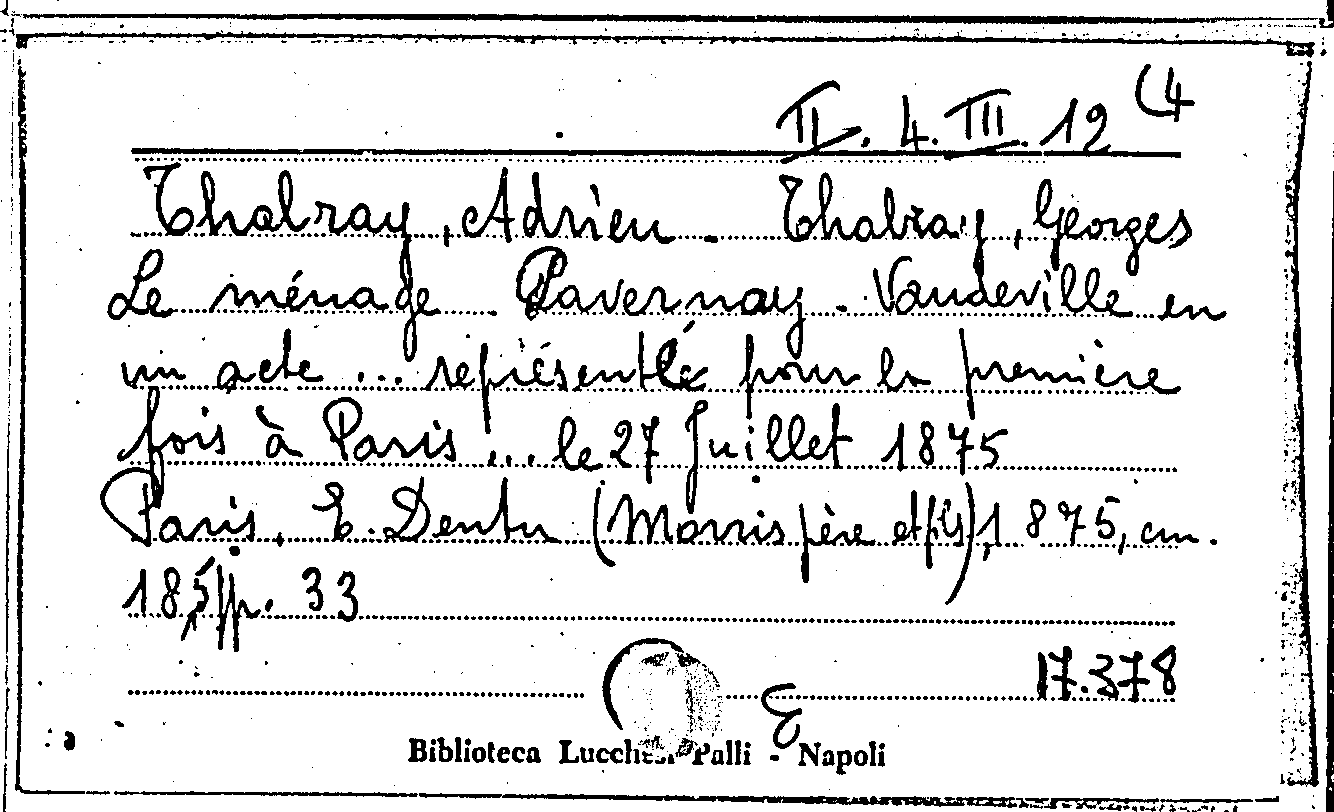 II. 4. III. 12 (4
Thalray, Adrien - Thalray, Georges
Le ménage Pavernay - Vaudeville en
un acte ... représenté pour la première
fois à Paris ... le 27 Juillet 1875
Paris, E. Dentu (Morris père et fils), 1875, cm.
18,5 pp. 33
17.378
E
Biblioteca Lucchesi Palli - Napoli